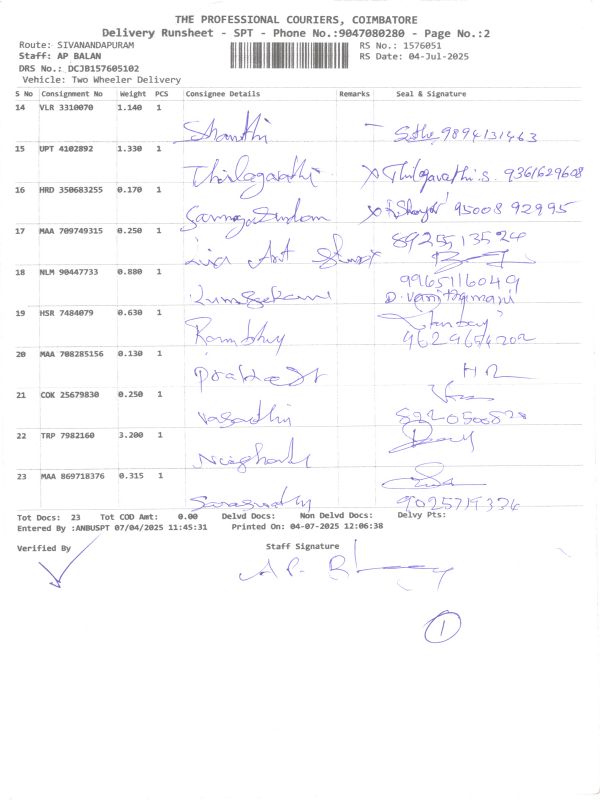 THE PROFESSIONAL COURIERS, COIMBATORE
Delivery Runsheet - SPT - Phone No.:9047080280 - Page No.:2
Route: SIVANANDAPURAM RS No.: 1576051
Staff: AP BALAN RS Date: 04-Jul-2025
DRS No.: DCJB157605102
Vehicle: Two Wheeler Delivery
S No Consignment No Weight PCS Consignee Details Remarks Seal & Signature
14 VLR 3310070 1.140 1
Shanthi 9894131463
15 UPT 4102892 1.330 1
Thilagavathi Thilagavathi.S. 9361629608
16 HRD 350683255 0.170 1
95008 92995
17 MAA 709749315 0.250 1 8925513524
Art
18 NLM 90447733 0.880 1 9965116049
D. Vanithamani
19 HSR 7484079 0.630 1
9629654202
20 MAA 708285156 0.130 1
21 COK 25679830 0.250 1
Vasanthi 8220500828
22 TRP 7982160 3.200 1
23 MAA 869718376 0.315 1
9025719336
Tot Docs: 23 Tot COD Amt: 0.00 Delvd Docs: Non Delvd Docs: Delvy Pts:
Entered By :ANBUSPT 07/04/2025 11:45:31 Printed On: 04-07-2025 12:06:38
Verified By Staff Signature
A P.
1